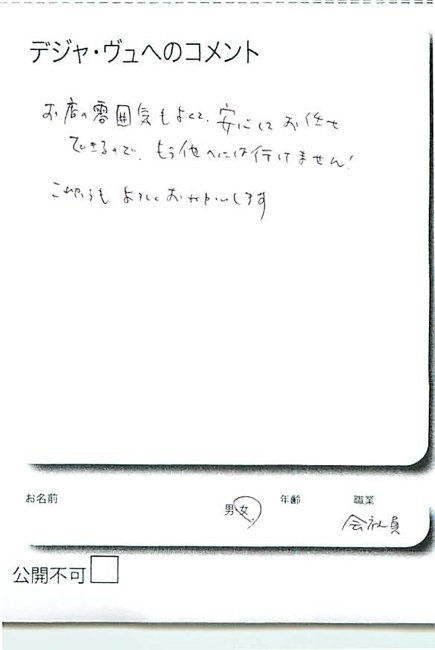 デジャ・ヴュへのコメント
お店の雰囲気もよくて、安心してお任せ
できるので、もう他へには行けません!
これからも よろしくおねがいします
お名前
男 女
年齢
職業
会社員
公開不可